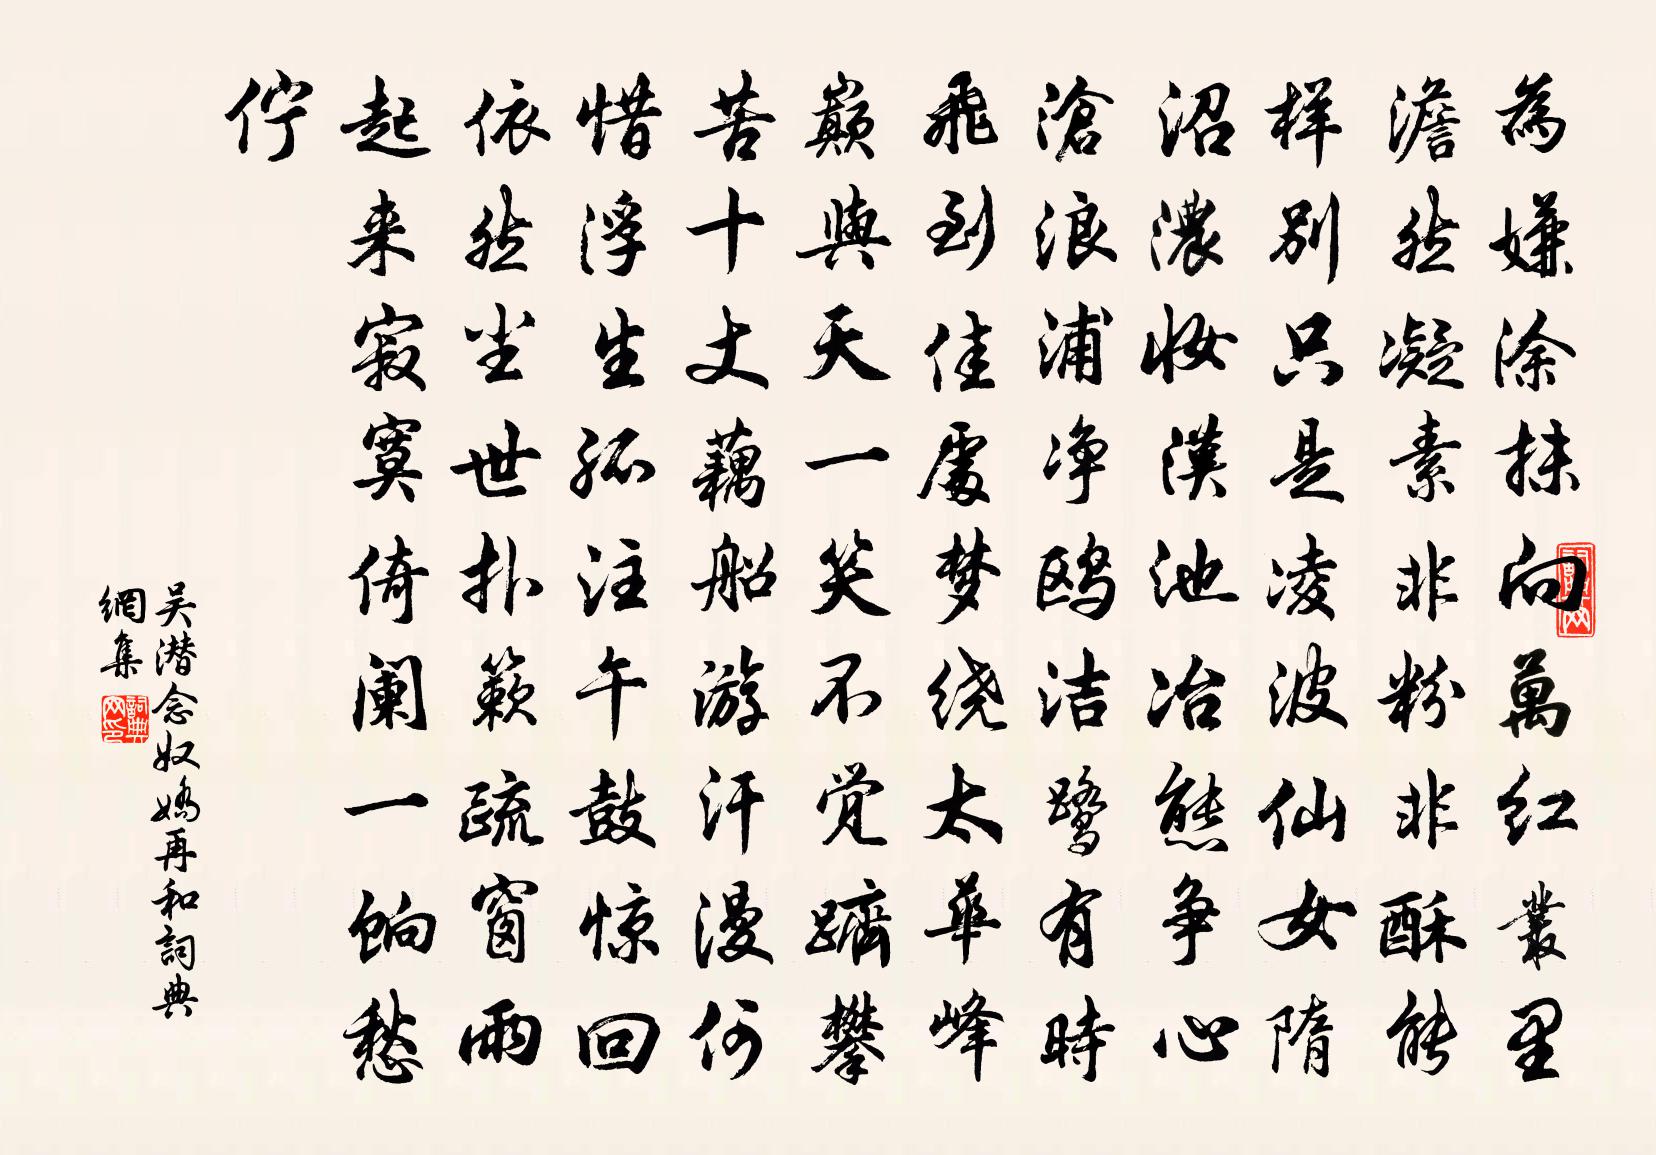 為嫌涂抹向萬红叢里
澹然凝素非粉非酥能
样別只是凌波仙女隋
沼濃妝漢池冶態争心
滄浪浦净鸥洁鹭有時
飛到佳處梦绕太華峰
巅與天一笑不觉躋攀
苦十丈藕船游汗漫何
惜浮生孤注午鼓惊回
依然坐世扑簌疏窗雨
起来寂寞倚阑一饷愁
佇
吴潜念奴嬌再和詞典
網集
詞典网印